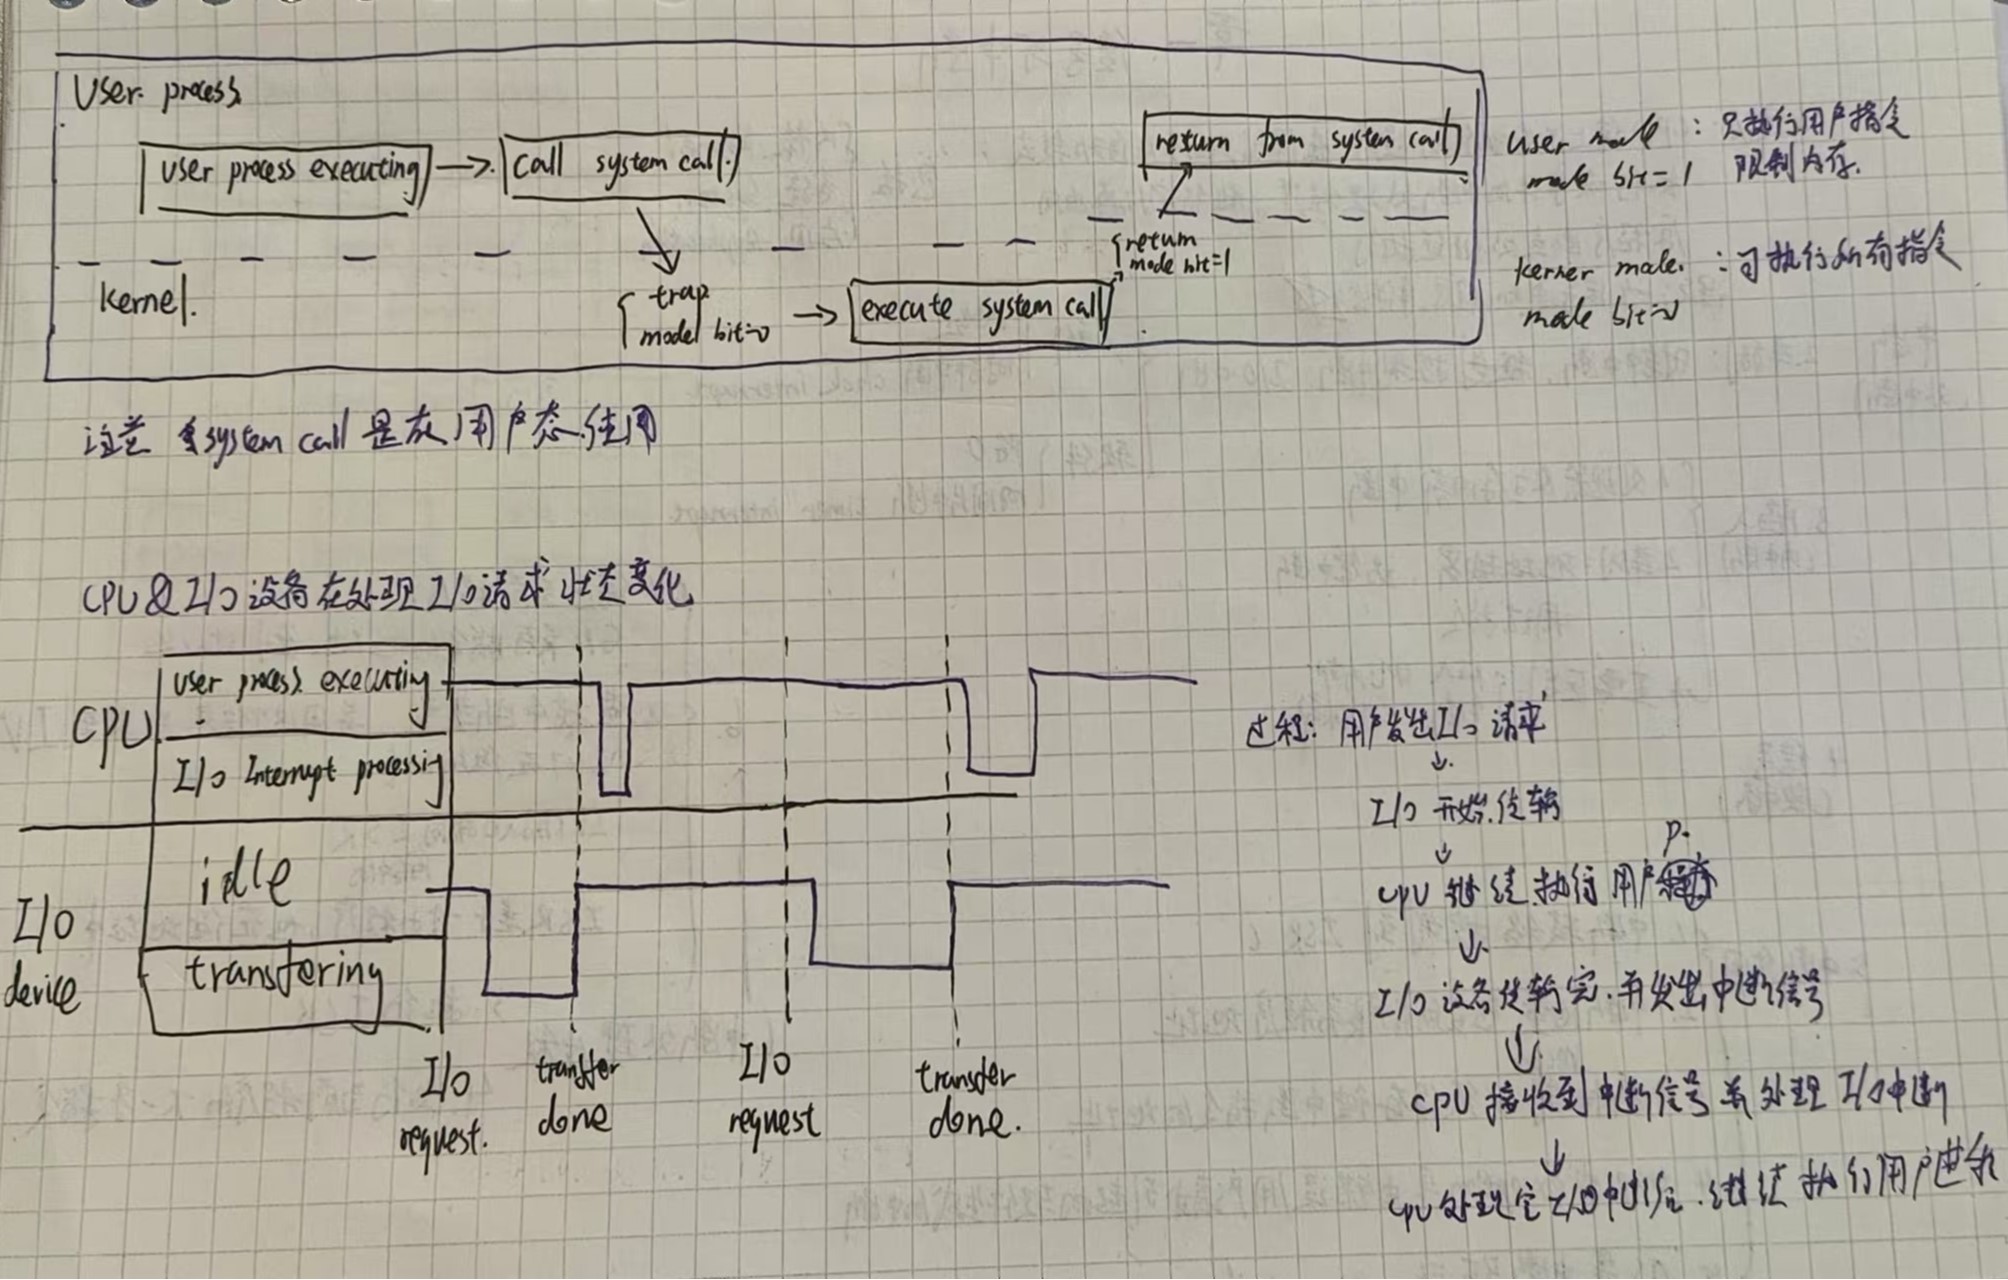 User process
user process executing
call system call
return from system call
return
mode bit=1
kernel.
trap
model bit=0
execute system call
user mode : 只执行用户指令
mode bit=1 限制内存.
kerner mode. : 可执行所有指令
mode bit=0
注意 system call 是在用户态使用
CPU & I/O 设备在处理 I/O 请求 状态变化
CPU
user process executing
I/O Interrupt processing
I/O
device
idle
transfering
I/O
request.
transfer
done
I/O
request
transfer
done.
过程: 用户发出I/O 请求
↓
I/O 开始传输
↓
CPU 继续执行用户
P.
↓
I/O 设备传输完.并发出中断信号
↓
CPU 接收到中断信号并处理 I/O中断
↓
CPU 处理完I/O中断后.继续执行用户进程